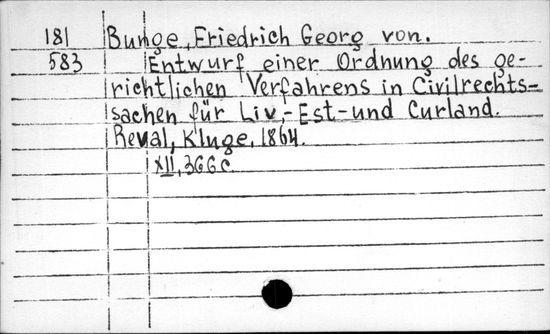 181 Bunge, Friedrich Georg von.
583 Entwurf einer Ordnung des ge-
richtlichen Verfahrens in Civilrechts=
sachen für Liv,-Est-und Curland.
Reval, Kluge, 1864.
XII, 366 c